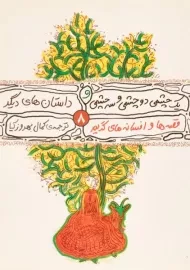 یک چشمی، دو چشمی و سه چشمی
و
داستان های دیگر
۸
قصه ها و افسانه های گریم
ترجمه‌ی کمال بهروزکیا